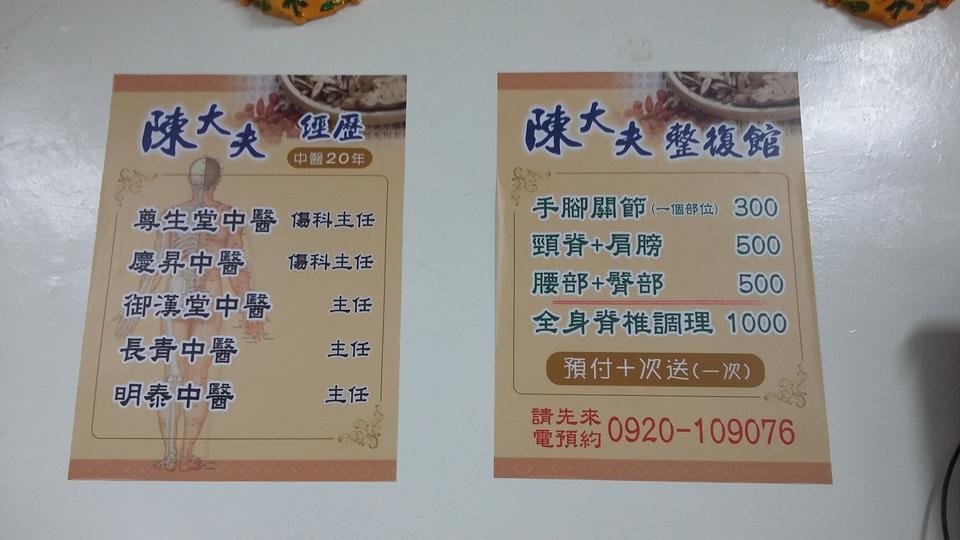 陳大夫 經歷
中醫20年
尊生堂中醫 傷科主任
慶昇中醫 傷科主任
御漢堂中醫 主任
長青中醫 主任
明泰中醫 主任
陳大夫 整復館
手腳關節(一個部位) 300
頸脊+肩膀 500
腰部+臀部 500
全身脊椎調理 1000
預付十次送(一次)
請先來
電預約 0920-109076